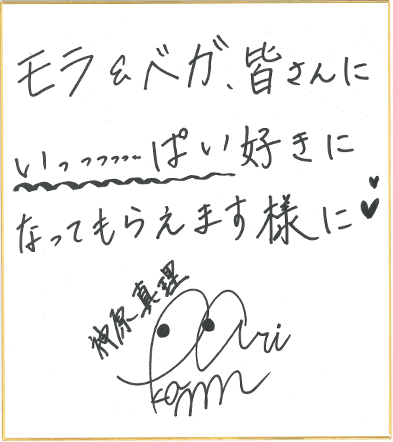 モラ&ベガ、皆さんに
いっっっっ……ぱい好きに
なってもらえます様に♥♥
神原真理
Mari